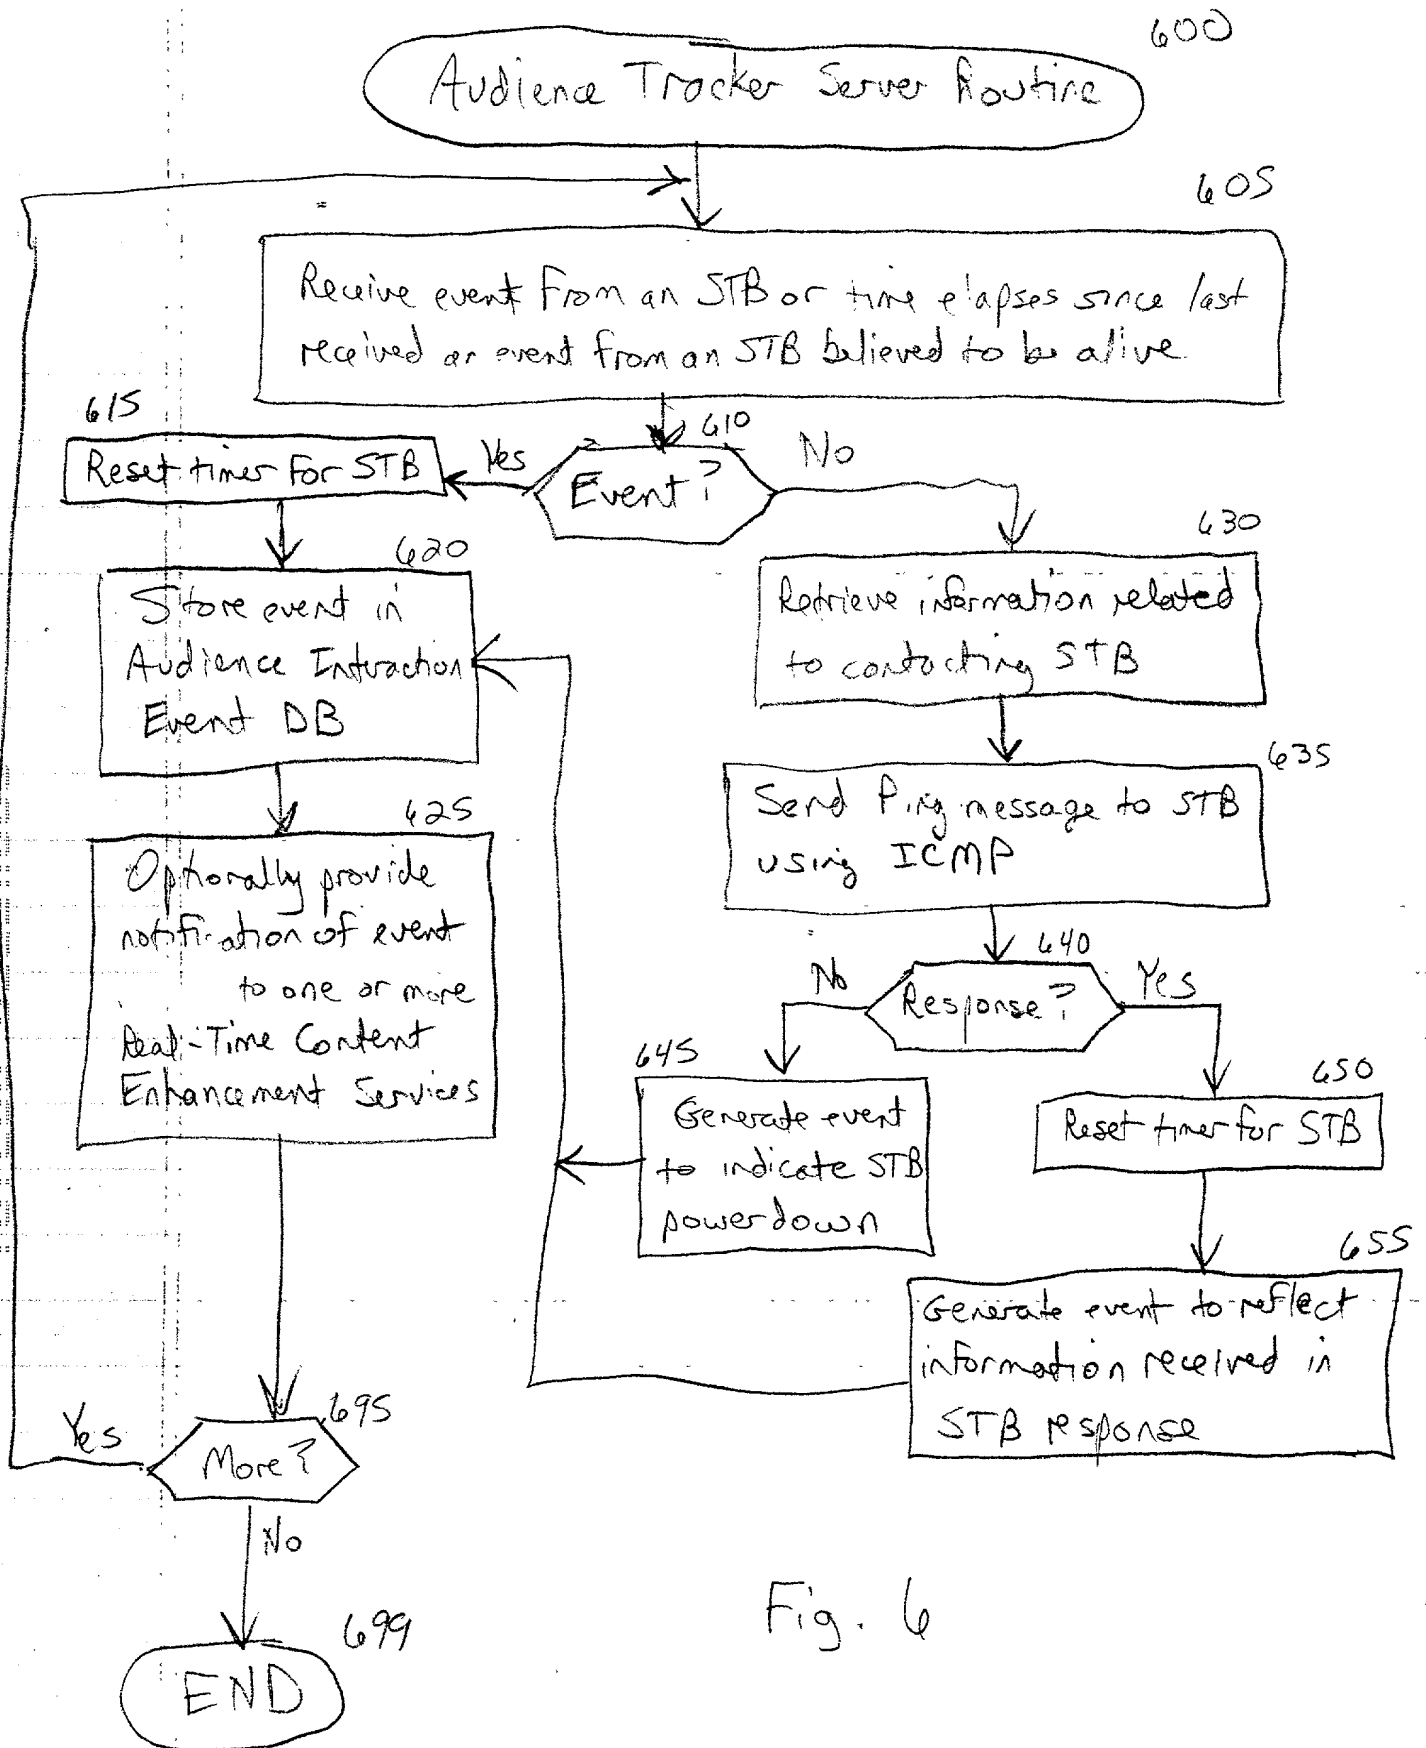 600
Audience Tracker Server Routine
605
Receive event from an STB or time elapses since last
received an event from an STB believed to be alive.
615
610
Reset timer for STB
Yes
Event?
No
620
630
Store event in
Audience Intraction
Event DB
Retrieve information related
to contacting STB
635
Send Ping message to STB
using ICMP
625
Optionally provide
notification of event
to one or more
Real-Time Content
Enhancement Services
640
No
Response?
Yes
645
Generate event
to indicate STB
powerdown
650
Reset timer for STB
655
Generate event to reflect
information received in
STB response
695
Yes
More?
No
699
END
Fig. 6